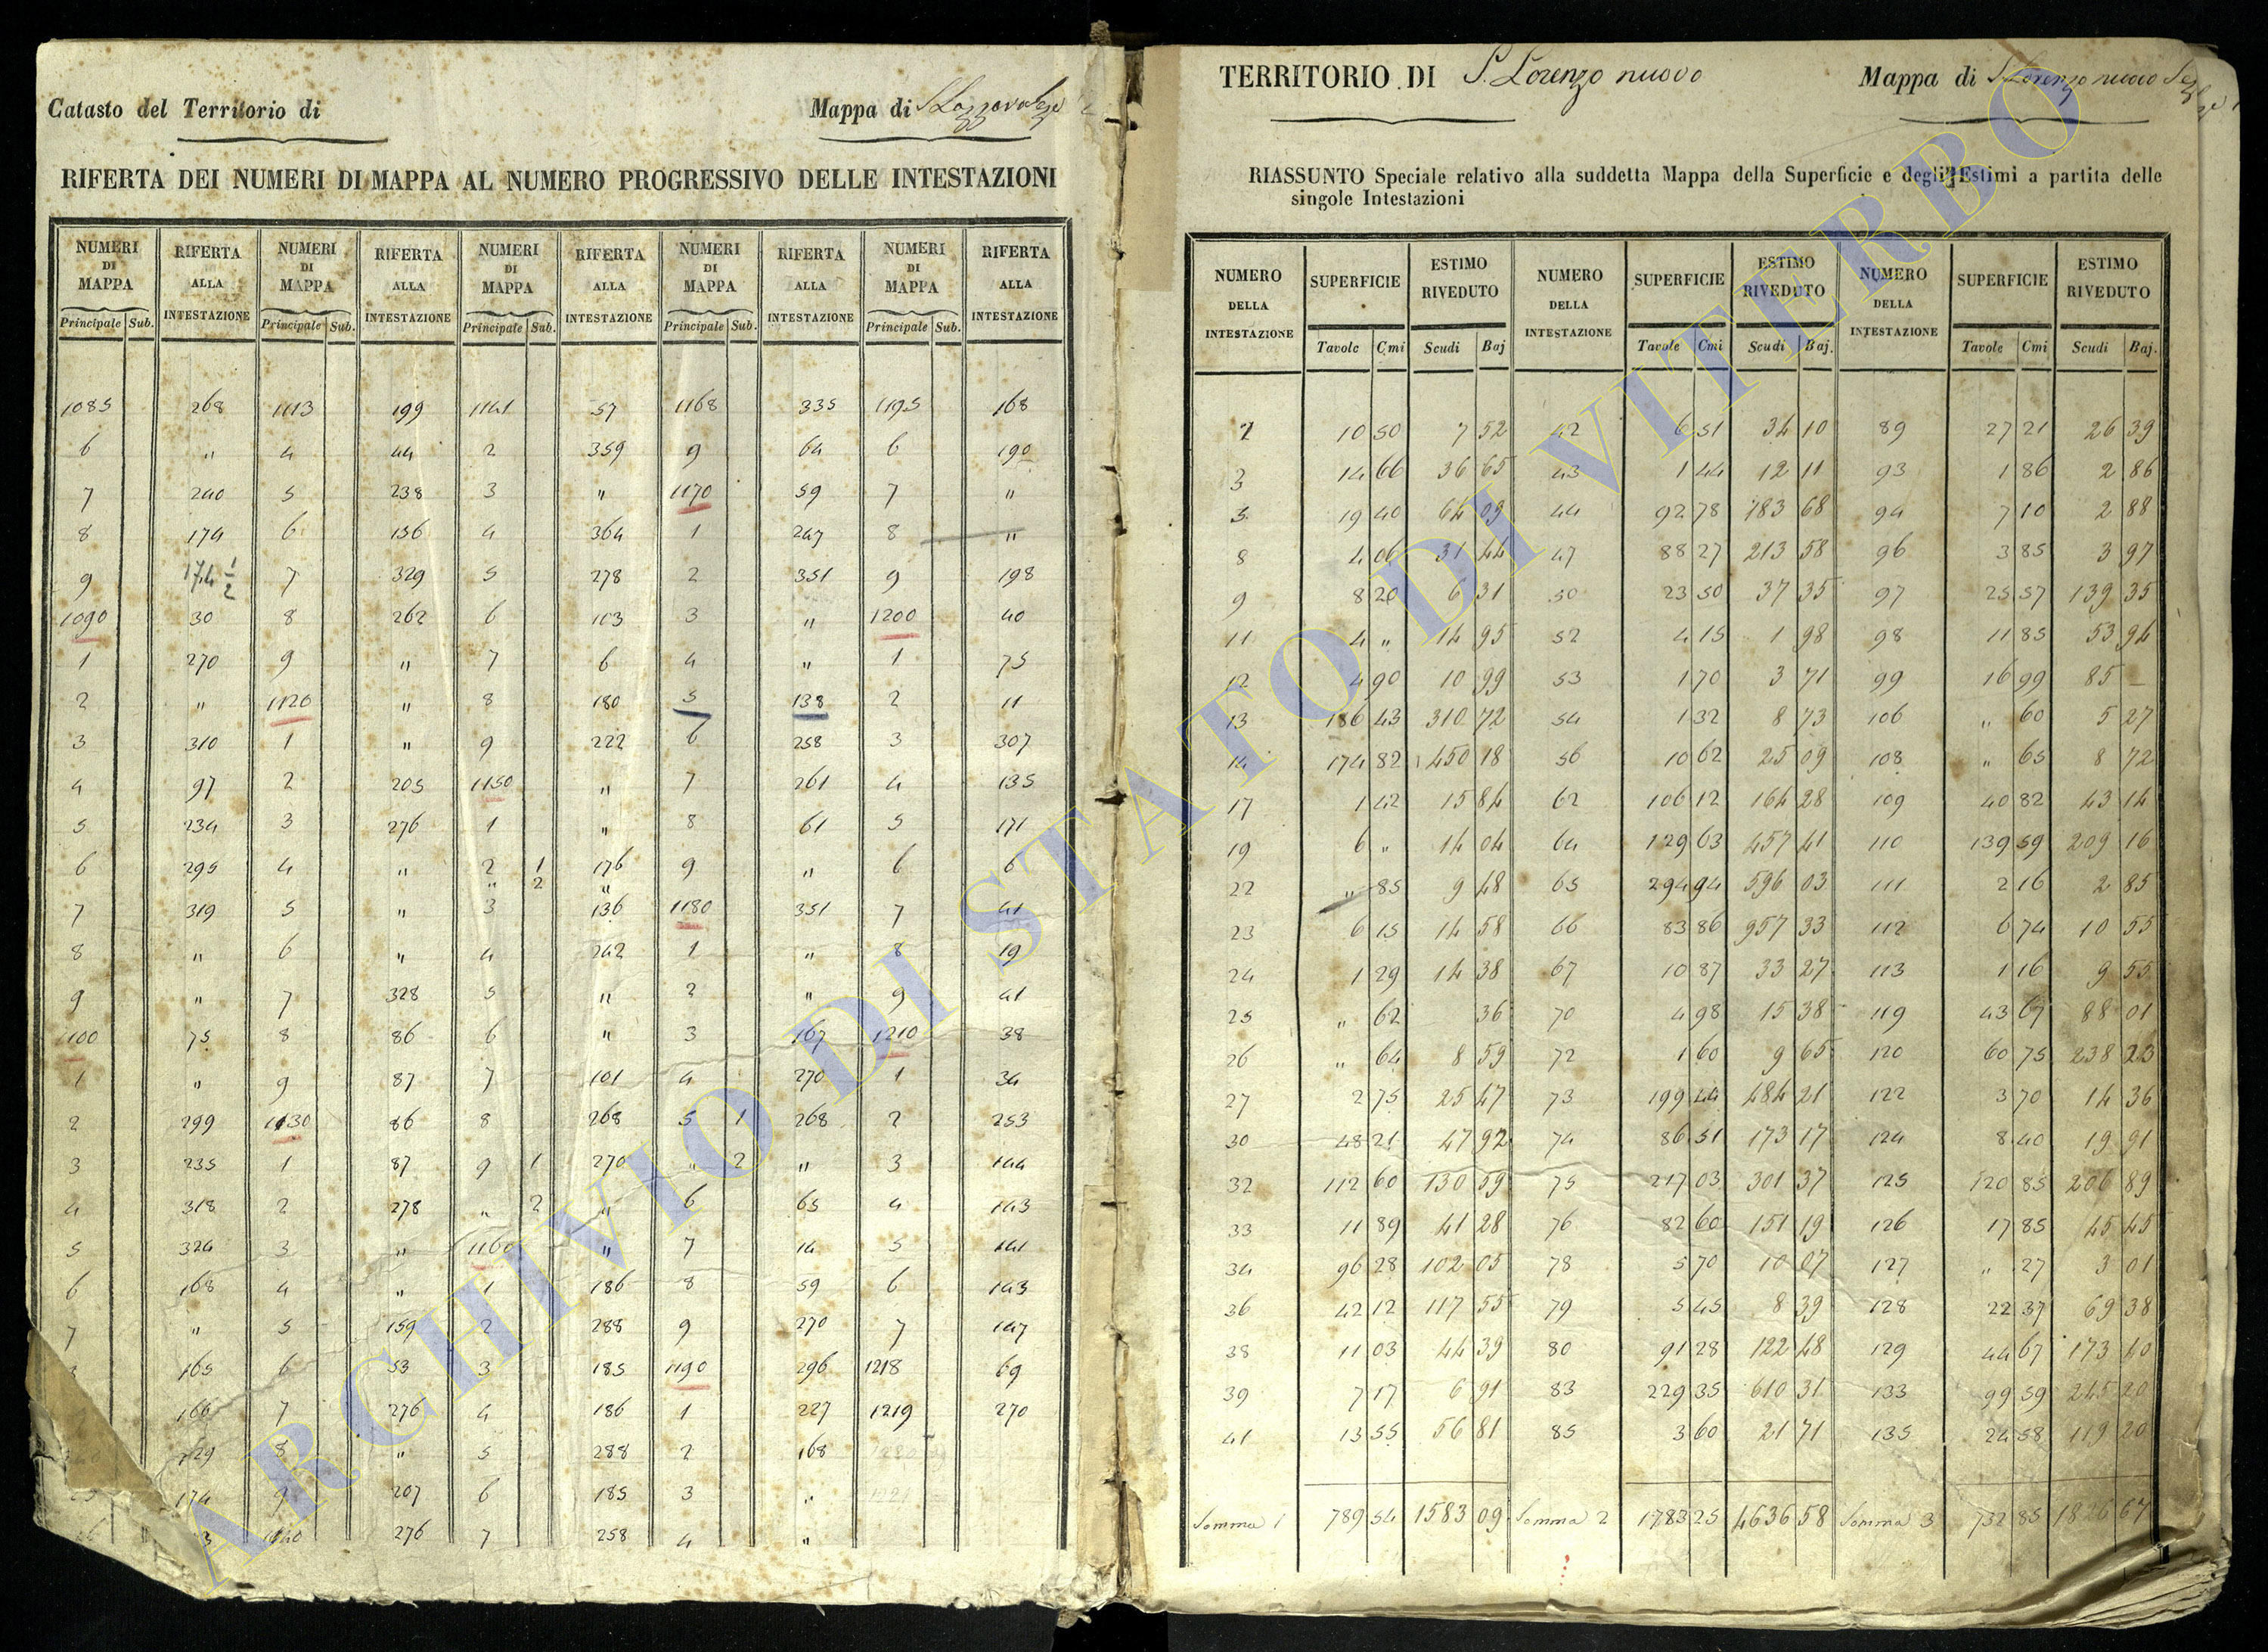 Catasto del Territorio di
Mappa di
RIFERTA DEI NUMERI DI MAPPA AL NUMERO PROGRESSIVO DELLE INTESTAZIONI
NUMERI DI MAPPA RIFERTA ALLA INTESTAZIONE NUMERI DI MAPPA RIFERTA ALLA INTESTAZIONE NUMERI DI MAPPA RIFERTA ALLA INTESTAZIONE NUMERI DI MAPPA RIFERTA ALLA INTESTAZIONE NUMERI DI MAPPA RIFERTA ALLA INTESTAZIONE
Principale Sub. Principale Sub. Principale Sub. Principale Sub. Principale Sub.
1085 268 1113 199 1141 57 1168 335 1195 168
6 " 4 44 2 359 9 64 6 190
7 240 5 238 3 " 1170 59 7 "
8 174 6 136 4 364 1 247 8 "
9 174 1/2 7 329 5 278 2 351 9 198
1090 30 8 262 6 103 3 " 1200 40
1 270 9 " 7 6 4 " 1 75
2 " 1120 " 8 180 5 138 2 11
3 310 1 " 9 222 6 258 3 307
4 97 2 205 1150 " 7 261 4 135
5 234 3 276 1 " 8 61 5 171
6 295 4 " 2 1 176 9 " 6 6
" 2 "
7 319 5 " 3 136 1180 351 7 41
8 " 6 " 4 242 1 " 8 19
9 " 7 328 5 " 2 " 9 41
1100 75 8 86 6 " 3 167 1210 38
1 " 9 87 7 101 4 270 1 34
2 299 1130 86 8 268 5 1 268 2 253
3 235 1 87 9 1 270 " 2 " 3 144
4 318 2 278 " 2 " 6 65 4 143
5 324 3 " 1160 " 7 14 5 141
6 168 4 " 1 186 8 59 6 143
7 " 5 159 2 288 9 270 7 147
165 6 53 3 185 1190 296 1218 69
166 7 276 4 186 1 227 1219 270
8 " 5 288 2 168
174 9 207 6 185 3 "
1140 276 7 258 4 "
TERRITORIO DI S. Lorenzo nuovo
Mappa di S. Lorenzo nuovo
RIASSUNTO Speciale relativo alla suddetta Mappa della Superficie e degli Estimi a partita delle
singole Intestazioni
NUMERO DELLA INTESTAZIONE SUPERFICIE ESTIMO RIVEDUTO NUMERO DELLA INTESTAZIONE SUPERFICIE ESTIMO RIVEDUTO NUMERO DELLA INTESTAZIONE SUPERFICIE ESTIMO RIVEDUTO
Tavole Cmi Scudi Baj Tavole Cmi Scudi Baj. Tavole Cmi Scudi Baj.
2 10 50 7 52 42 6 51 34 10 89 27 21 26 39
3 14 66 36 65 43 1 44 12 11 93 1 86 2 86
5 19 40 64 09 44 92 78 783 68 94 7 10 2 88
8 4 06 31 44 47 88 27 213 58 96 3 85 3 97
9 8 20 6 31 50 23 50 37 35 97 25 57 139 35
11 4 " 14 95 52 4 15 1 98 98 11 85 53 94
12 4 90 10 99 53 1 70 3 71 99 16 99 85 —
13 186 43 310 72 54 1 32 8 73 106 " 60 5 27
14 174 82 450 18 56 10 62 25 09 108 " 65 8 72
17 1 42 15 84 62 106 12 164 28 109 40 82 43 14
19 6 " 14 04 64 129 63 457 41 110 139 59 209 16
22 " 85 9 48 65 294 94 596 03 111 2 16 2 85
23 6 15 14 58 66 83 86 957 33 112 6 74 10 55
24 1 29 14 38 67 10 87 33 27 113 1 16 9 55
25 " 62 36 70 4 98 15 38 119 43 67 88 01
26 " 64 8 59 72 1 60 9 65 120 60 75 238 23
27 2 75 25 47 73 199 44 484 21 122 3 70 14 36
30 48 21 47 92 74 86 51 173 17 124 8 40 19 91
32 112 60 130 59 75 217 03 301 37 125 120 85 206 89
33 11 89 41 28 76 82 60 151 19 126 17 85 45 45
34 96 28 102 05 78 5 70 10 07 127 " 27 3 01
36 42 12 117 55 79 5 45 8 39 128 22 37 69 38
38 11 03 44 39 80 91 28 122 48 129 44 67 173 40
39 7 17 6 91 83 229 35 610 31 133 99 59 245 20
41 13 55 56 81 85 3 60 21 71 135 24 58 119 20
Somma 1 789 54 1583 09 Somma 2 1783 25 4636 58 Somma 3 732 85 1826 67
ARCHIVIO DI STATO DI VITERBO